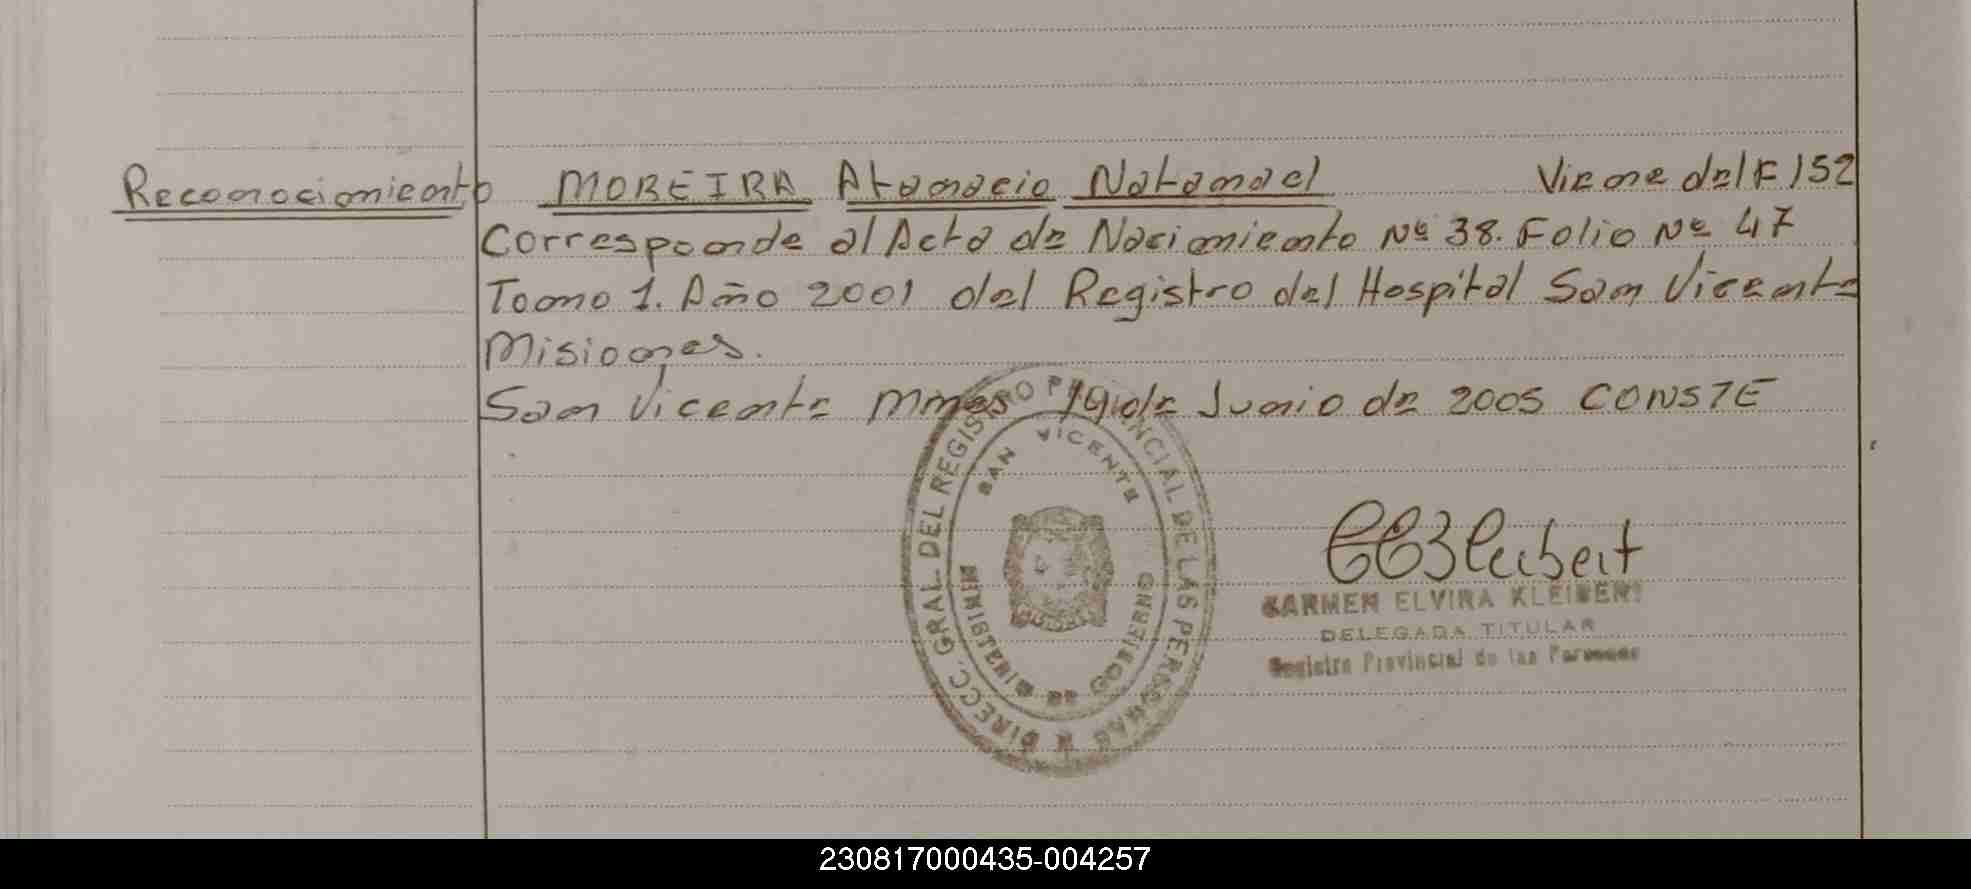 Reconocimiento MOREIRA Atanacio Natanael Viene del F 152
Corresponde al Acta de Nacimiento Nº 38. Folio Nº 47
Tomo 1. Año 2001 del Registro del Hospital San Vicente
Misiones.
San Vicente Mnes de Junio de 2005 CONSTE
DIRECC. GRAL. DEL REGISTRO PROVINCIAL DE LAS PERSONAS
SAN VICENTE
MINISTERIO DE GOBIERNO
CARMEN ELVIRA KLEIBERT
DELEGADA TITULAR
Registro Provincial de las Personas
230817000435-004257